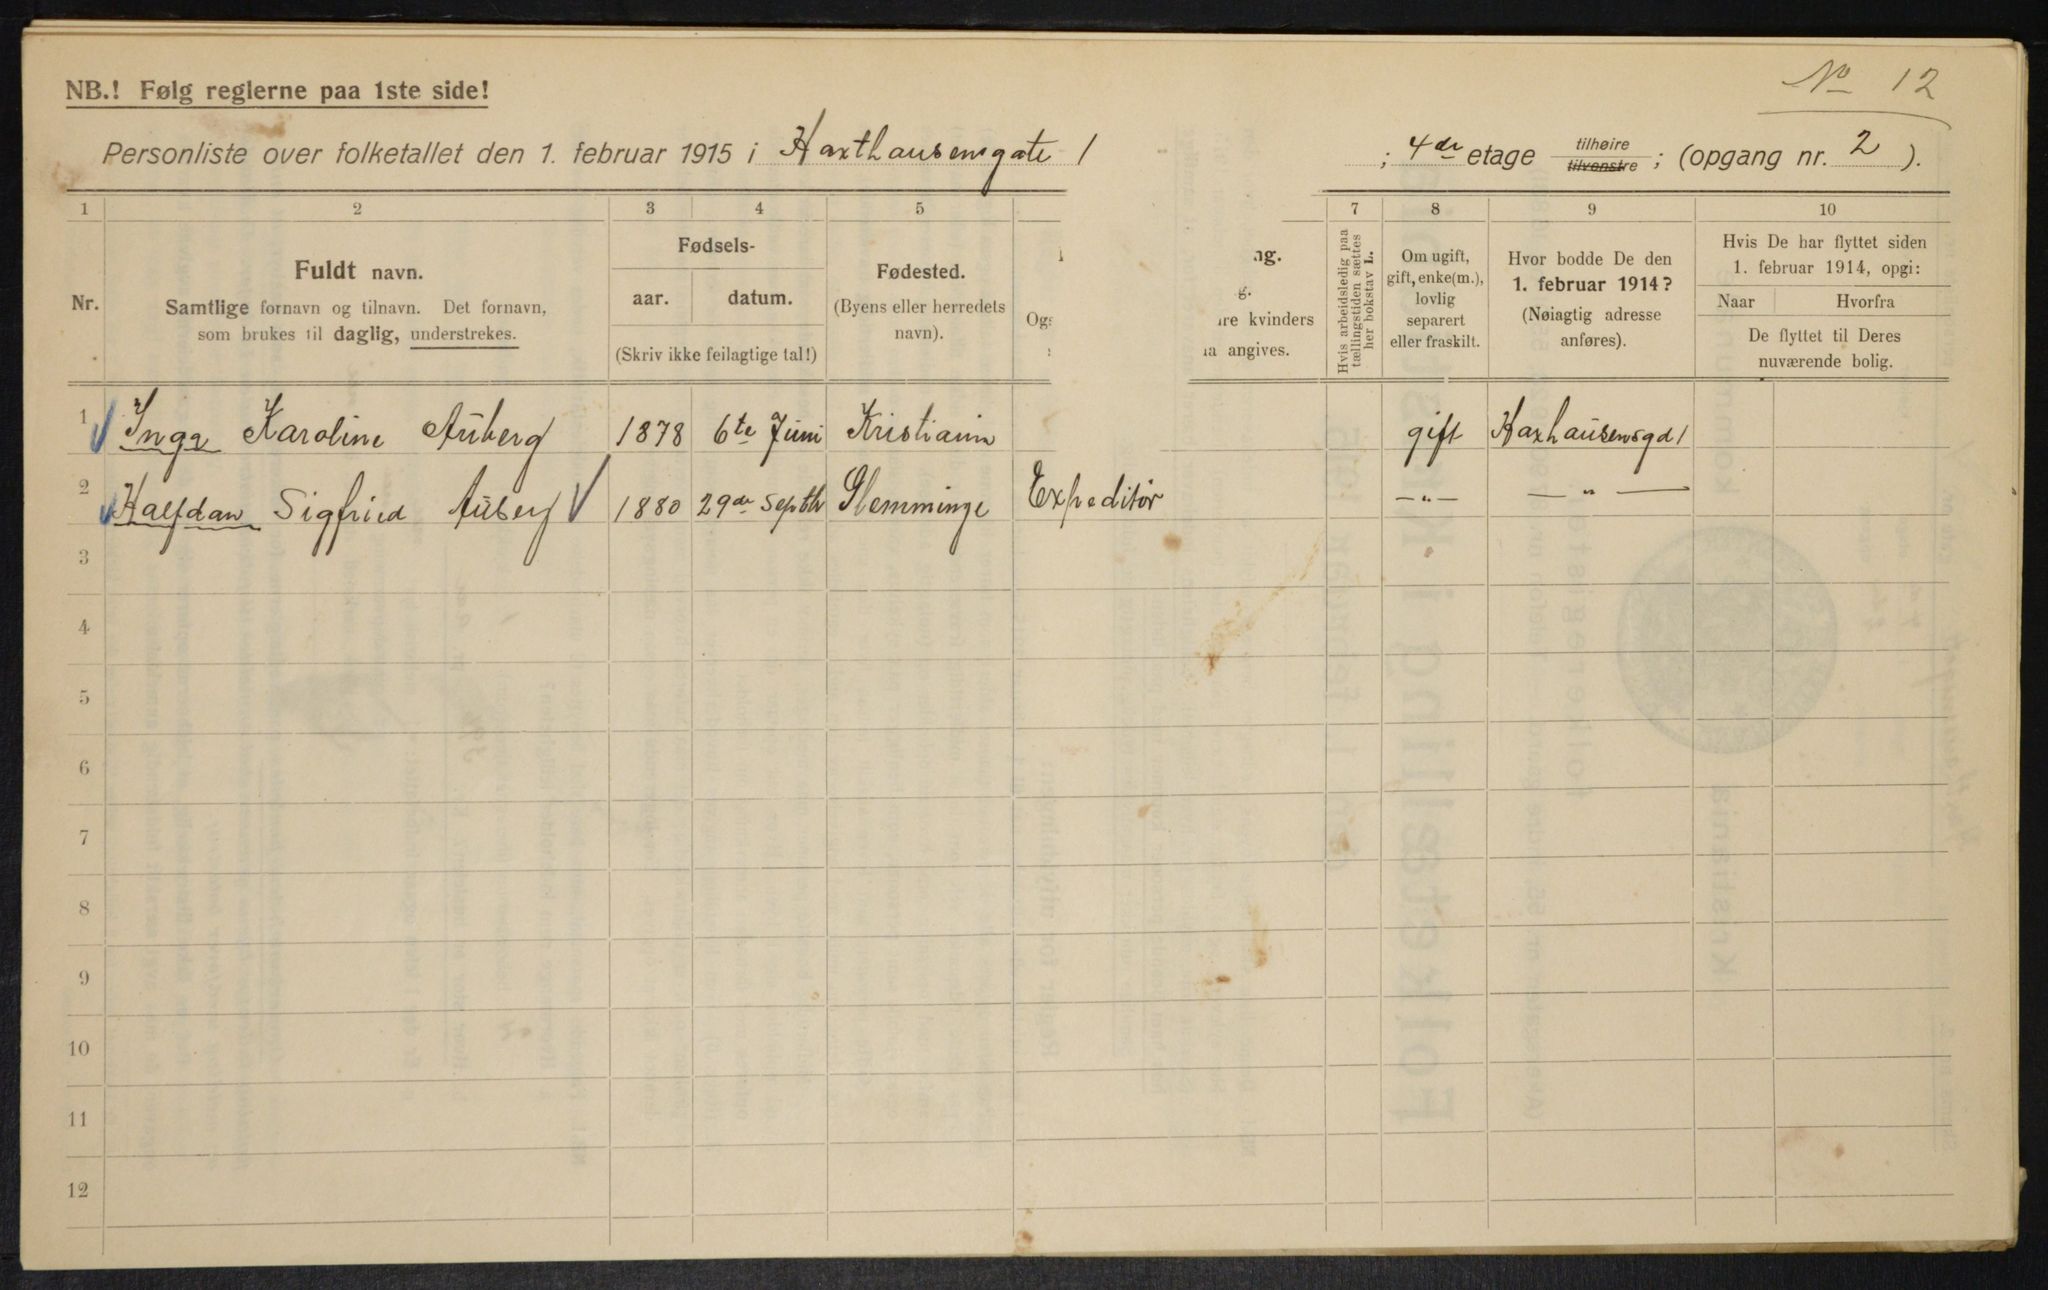 No 12
NB.! Følg reglerne paa 1ste side!
Personliste over folketallet den 1. februar 1915 i Haxthausensgate 1 ; 4de etage tilhøire tilvenstre ; (opgang nr. 2 ).
1 2 3 4 5 7 8 9 10
Nr.
Fuldt navn.
Samtlige fornavn og tilnavn. Det fornavn,
som brukes til daglig, understrekes.
Fødsels-
aar. datum.
(Skriv ikke feilagtige tal!)
Fødested.
(Byens eller herredets
navn).
Ogs
ng.
g.
re kvinders
a angives.
Hvis arbeidsledig paa
tællingstiden sættes
her bokstav L.
Om ugift,
gift, enke(m.),
lovlig
separert
eller fraskilt.
Hvor bodde De den
1. februar 1914?
(Nøiagtig adresse
anføres).
Hvis De har flyttet siden
1. februar 1914, opgi:
Naar Hvorfra
De flyttet til Deres
nuværende bolig.
1 Inga Karoline Auberg 1878 6te Juni Kristiania gift Haxhausensgd 1
2 Halfdan Sigfried Auberg 1880 29de Septb Glemminge Expeditør —„— —„—
3
4
5
6
7
8
9
10
11
12